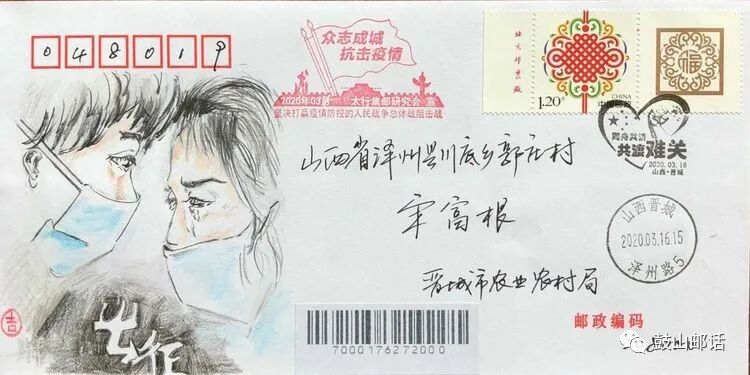 048019
众志成城
抗击疫情
2020年03月 太行集邮研究会 宣
坚决打赢疫情防控的人民战争总体战阻击战
北京邮票厂
1.20元
中国邮政
CHINA
福
同舟共济
共渡难关
2020.03.16
山西·晋城
山西省泽州县川底乡郭庄村
牢富根
晋城市农业农村局
山西晋城
2020.03.16.15
泽州路5
7000176272000
邮政编码
吉
鼓山邮话